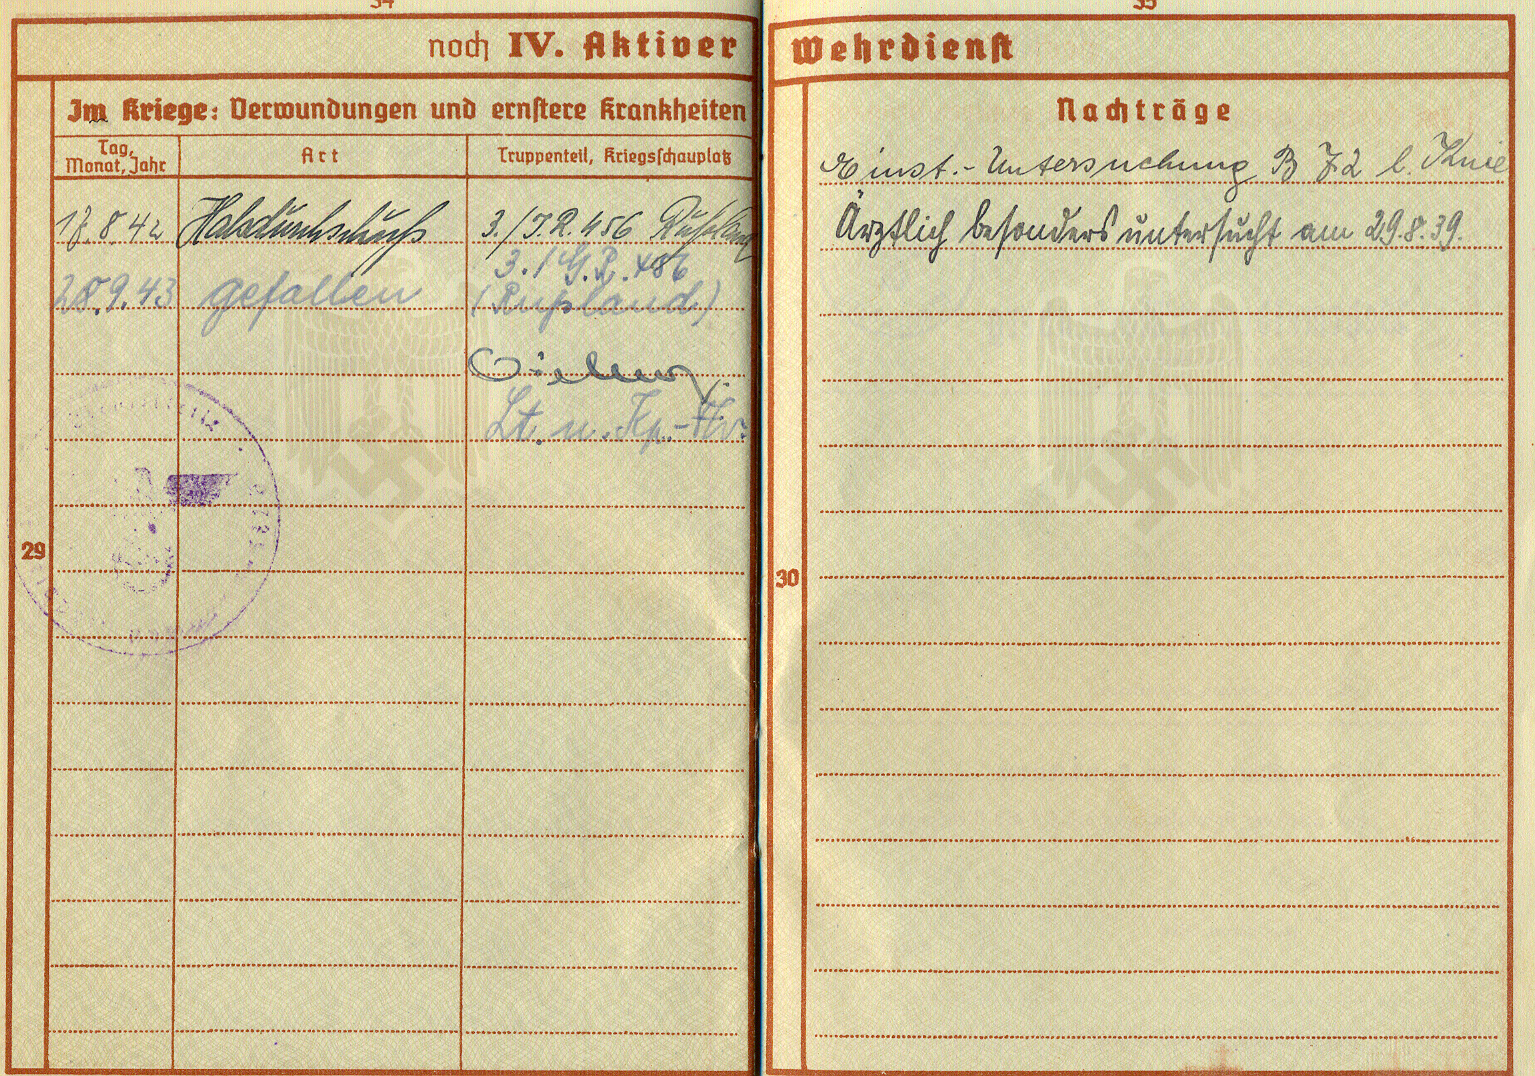 34
noch IV. Aktiver
Im Kriege: Verwundungen und ernstere Krankheiten
Tag, Monat, Jahr
Art
Truppenteil, Kriegsschauplatz
8.42 Halsdurchschuß 3./I.R. 456 Rußland
28.9.43 gefallen 3./G.R. 486
(Rußland)
Lt. u. Kp.-
29
35
Wehrdienst
Nachträge
Einst.-Untersuchung B 72 l. Knie
Ärztlich besonders untersucht am 29.8.39.
30